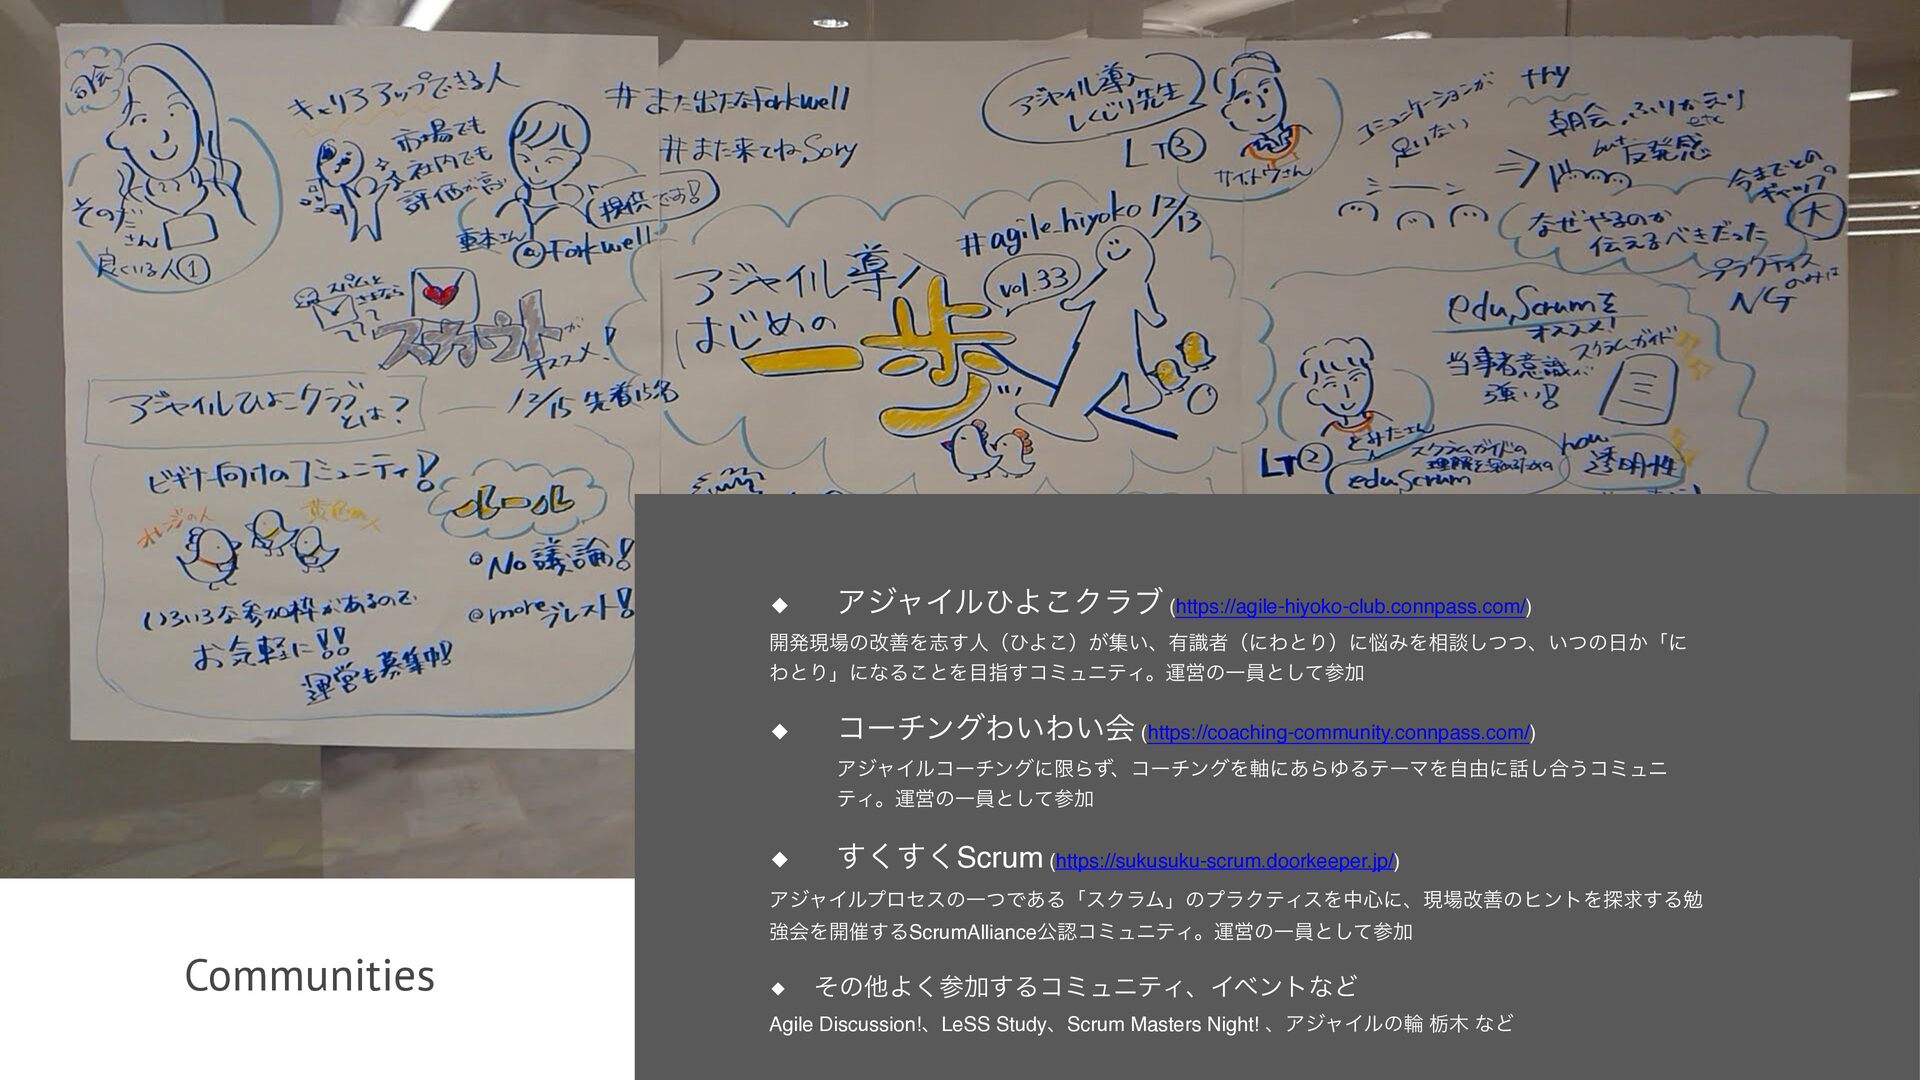 司会
そのださん
良くいる人①
キャリアアップできる人
市場でも
社内でも
評価が高い
#また出たなForkwell
#また来てね、Sory
提供です!
重本さん
@Forkwell
スパムと
さよなら
スカウトが
オススメ!
12/15 先着15名
アジャイルひよこクラブ
とは?
ビギナー向けのコミュニティ!
オレンジの人
黄色の人
いろいろな参加枠があるので、
お気軽に!!
運営も募集中!
ルール
No 議論!
more ブレスト!
#agile_hiyoko 12/13
vol.33
アジャイル導入
はじめの
一歩
アジャイル導入
しくじり先生
LT③
サイトウさん
コミュニケーションが
足りない
try
朝会、ふりかえり
etc
but 反発感
今までとの
ギャップ
大
なぜやるのか
伝えるべきだった
プラクティス
のみは
NG
eduScrumを
オススメ!
当事者意識が
強い!
スクラムガイド
とみたさん
LT②
スクラムガイドの
理解を深めるための
eduScrum
how
透明性
◆ アジャイルひよこクラブ (https://agile-hiyoko-club.connpass.com/)
開発現場の改善を志す人（ひよこ）が集い、有識者（にわとり）に悩みを相談しつつ、いつの日か「に
わとり」になることを目指すコミュニティ。運営の一員として参加
◆ コーチングわいわい会 (https://coaching-community.connpass.com/)
アジャイルコーチングに限らず、コーチングを軸にあらゆるテーマを自由に話し合うコミュニ
ティ。運営の一員として参加
◆ すくすくScrum (https://sukusuku-scrum.doorkeeper.jp/)
アジャイルプロセスの一つである「スクラム」のプラクティスを中心に、現場改善のヒントを探求する勉
強会を開催するScrumAlliance公認コミュニティ。運営の一員として参加
◆ その他よく参加するコミュニティ、イベントなど
Agile Discussion!、LeSS Study、Scrum Masters Night! 、アジャイルの輪 栃木 など
Communities